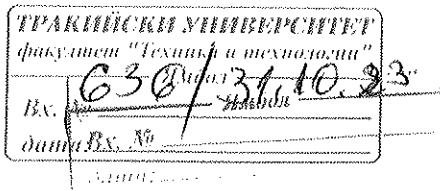 ТРАКИЙСКИ УНИВЕРСИТЕТ
факултет "Техника и технологии"
Ямбол
636 / 31.10.23
Вх. №
дата Вх. №